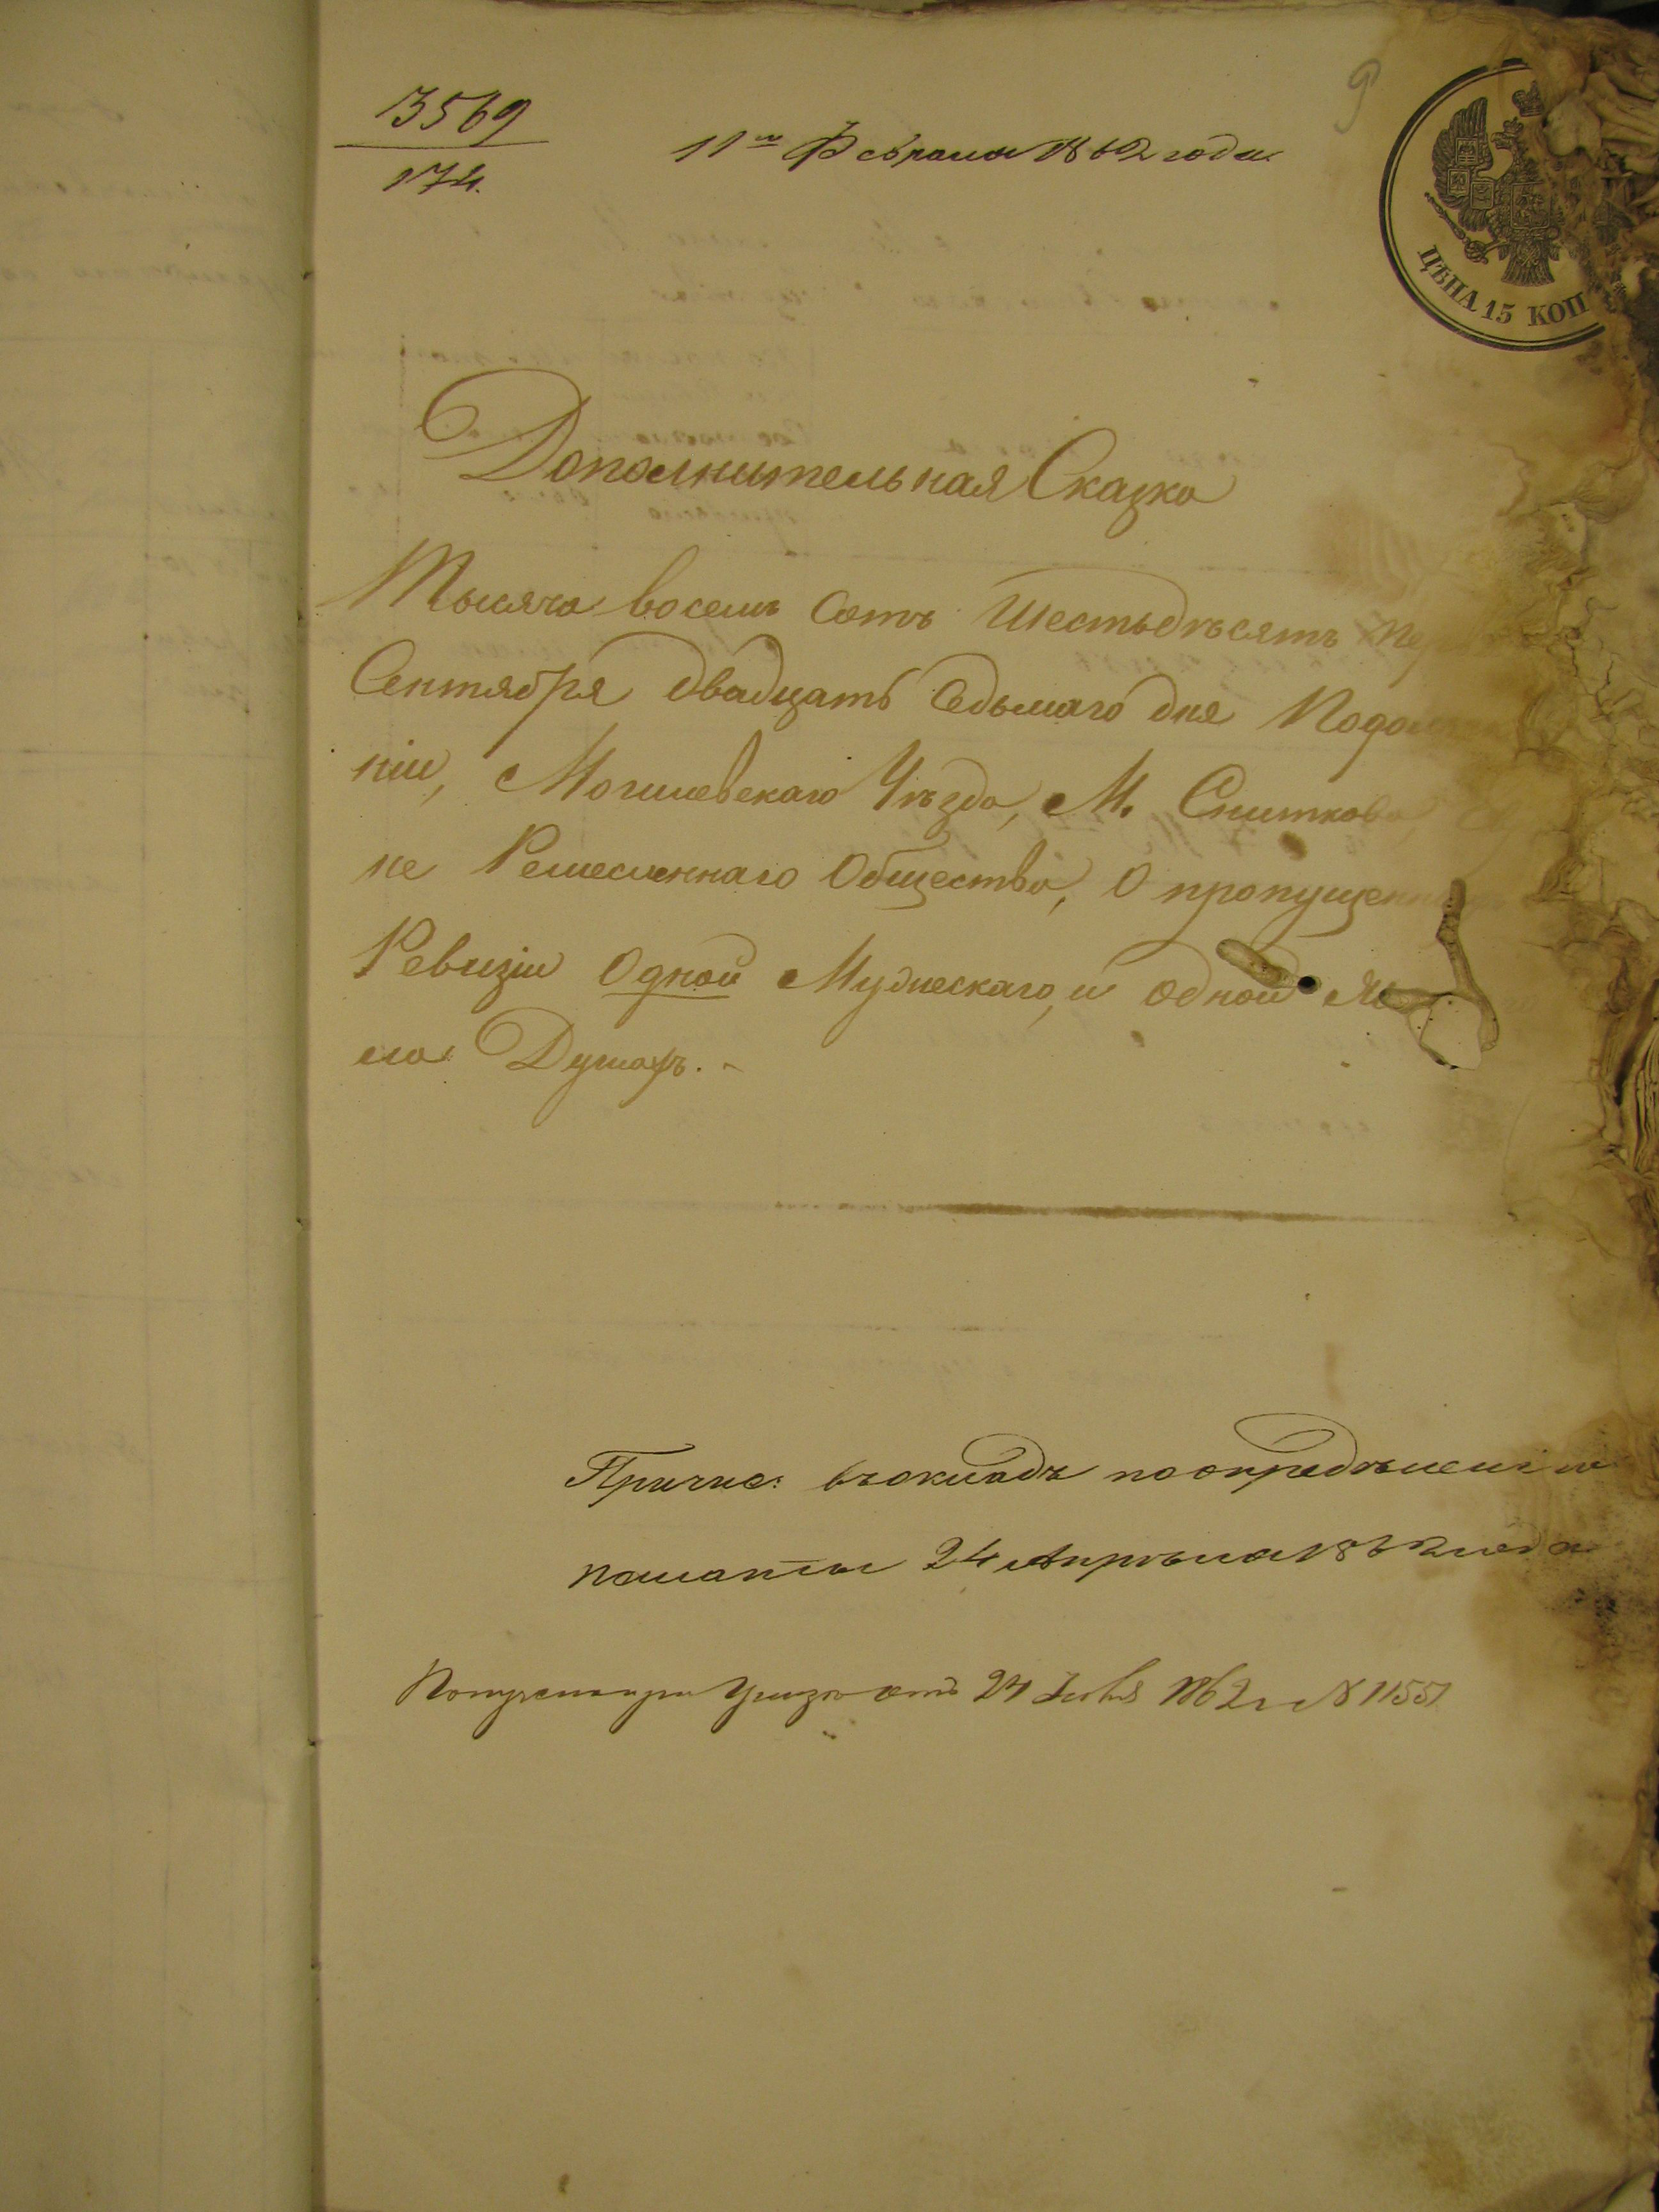 3569
174.
11го Февраля 1862 года
9
ЦѢНА 15 КОП
Дополнительная Сказка
Тысяча восемь Сотъ Шестьдѣсятъ
Сентября двадцать Седьмаго дня
ніи, Могилевскаго Уѣзда, М. Сниткова,
не Ремесленнаго Общества, О
Ревизіи Одной Мужескаго, и Одной
ла Душахъ. -
Причис: въ окладъ по опредѣленію
палаты 24 Апрѣля 1862 года
отъ 24 1862 г № 11551